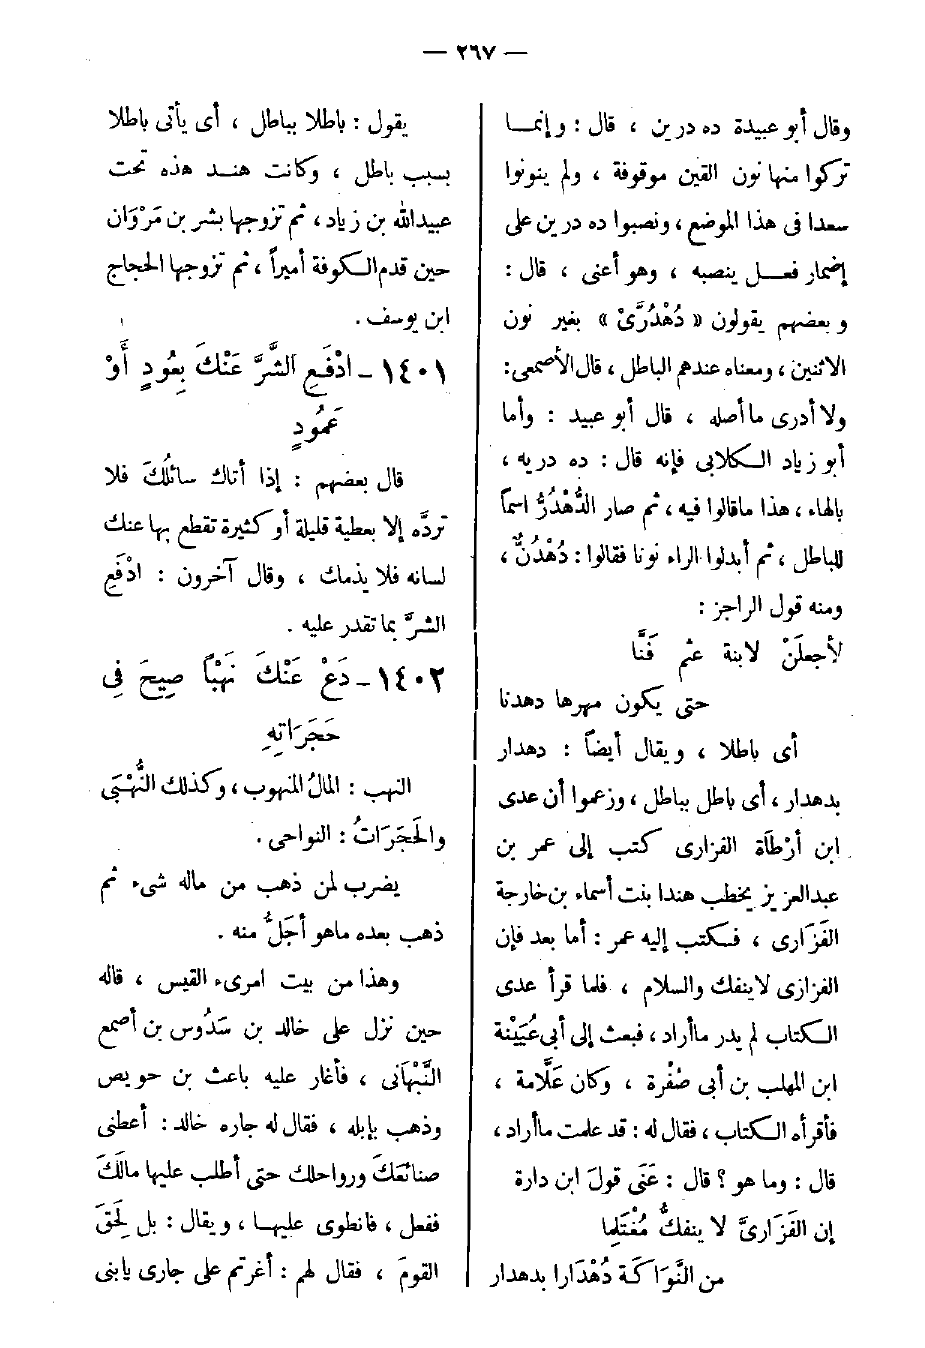 — ٢٦٧ —
وقال أبو عبيدة ده درين ، قال : وإنمـا
تركوا منها نون القين موقوفة ، ولم ينونوا
سعدا فى هذا الموضع ، ونصبوا ده درين على
إضمار فعـل ينصبه ، وهو أعنى ، قال :
وبعضهم يقولون « دُهْدُرَّىْ » بغير نون
الاثنين ، ومعناه عندهم الباطل ، قال الأصمعى :
ولا أدرى ما أصله ، قال أبو عبيد : وأما
أبو زياد الكلابى فإنه قال : ده دريه ،
بالهاء ، هذا ماقالوا فيه ، ثم صار الدُّهْدُرُّ اسمًا
للباطل ، ثم أبدلوا الراء نونا فقالوا : دُهْدُنٌّ ،
ومنه قول الراجز :
لأجعلَنْ لابنة عثم فَنَّا
حتى يكون مهرها دهدنا
أى باطلا ، ويقال أيضاً : دهدار
بدهدار ، أى باطل بباطل ، وزعموا أن عدى
ابن أرْطَاة الفزارى كتب إلى عمر بن
عبدالعزيز يخطب هندا بنت أسماء بن خارجة
الفَزَارى ، فكتب إليه عمر : أما بعد فإن
الفزازى لاينفك والسلام ، فلما قرأ عدى
الكتاب لم يدر ماأراد ، فبعث إلى أبى عُيَيْنة
ابن المهلب بن أبى صُفْرة ، وكان عَلَّامة ،
فأقرأه الكتاب ، فقال له : قد علمت ماأراد ،
قال : وما هو ؟ قال : عَنَى قولَ ابن دارة
إن الفَزَارىَّ لا ينفكُّ مُغْتَلِما
من النَّوَاكَة دُهْدَارا بدهدار
يقول : باطلا بباطل ، أى يأتى باطلا
بسبب باطل ، وكانت هنـد هذه تحت
عبيدالله بن زياد ، ثم تزوجها بشر بن مَرْوَان
حين قدم الكوفة أميراً ، ثم تزوجها الحجاج
ابن يوسف .
١٤٠١ - ادْفَعِ الشَّرَّ عَنْكَ بِعُودٍ أَوْ
عَمُودٍ
قال بعضهم : إذا أتاك سائلُكَ فلا
تردَّه إلا بعطية قليلة أو كثيرة تقطع بها عنك
لسانه فلا يذمك ، وقال آخرون : ادْفَعِ
الشرَّ بما تقدر عليه .
١٤٠٢ - دَعْ عَنْكَ نَهْبًا صِيحَ فِى
حَجَرَاتِهِ
النهب : المالُ المنهوب ، وكذلك النُّهْبَى
والحَجَرَاتُ : النواحى .
يضرب لمن ذهب من ماله شىء ثم
ذهب بعده ماهو أجَلُّ منه .
وهذا من بيت امرىء القيس ، قاله
حين نزل على خالد بن سَدُوس بن أصمع
النَّبْهَانى ، فأغار عليه باعث بن حويص
وذهب بإبله ، فقال له جاره خالد : أعطنى
صنائعَكَ ورواحلك حتى أطلب عليها مالَكَ
ففعل ، فانطوى عليهـا ، ويقال : بل لَحِقَ
القومَ ، فقال لهم : أغرتم على جارى يابنى